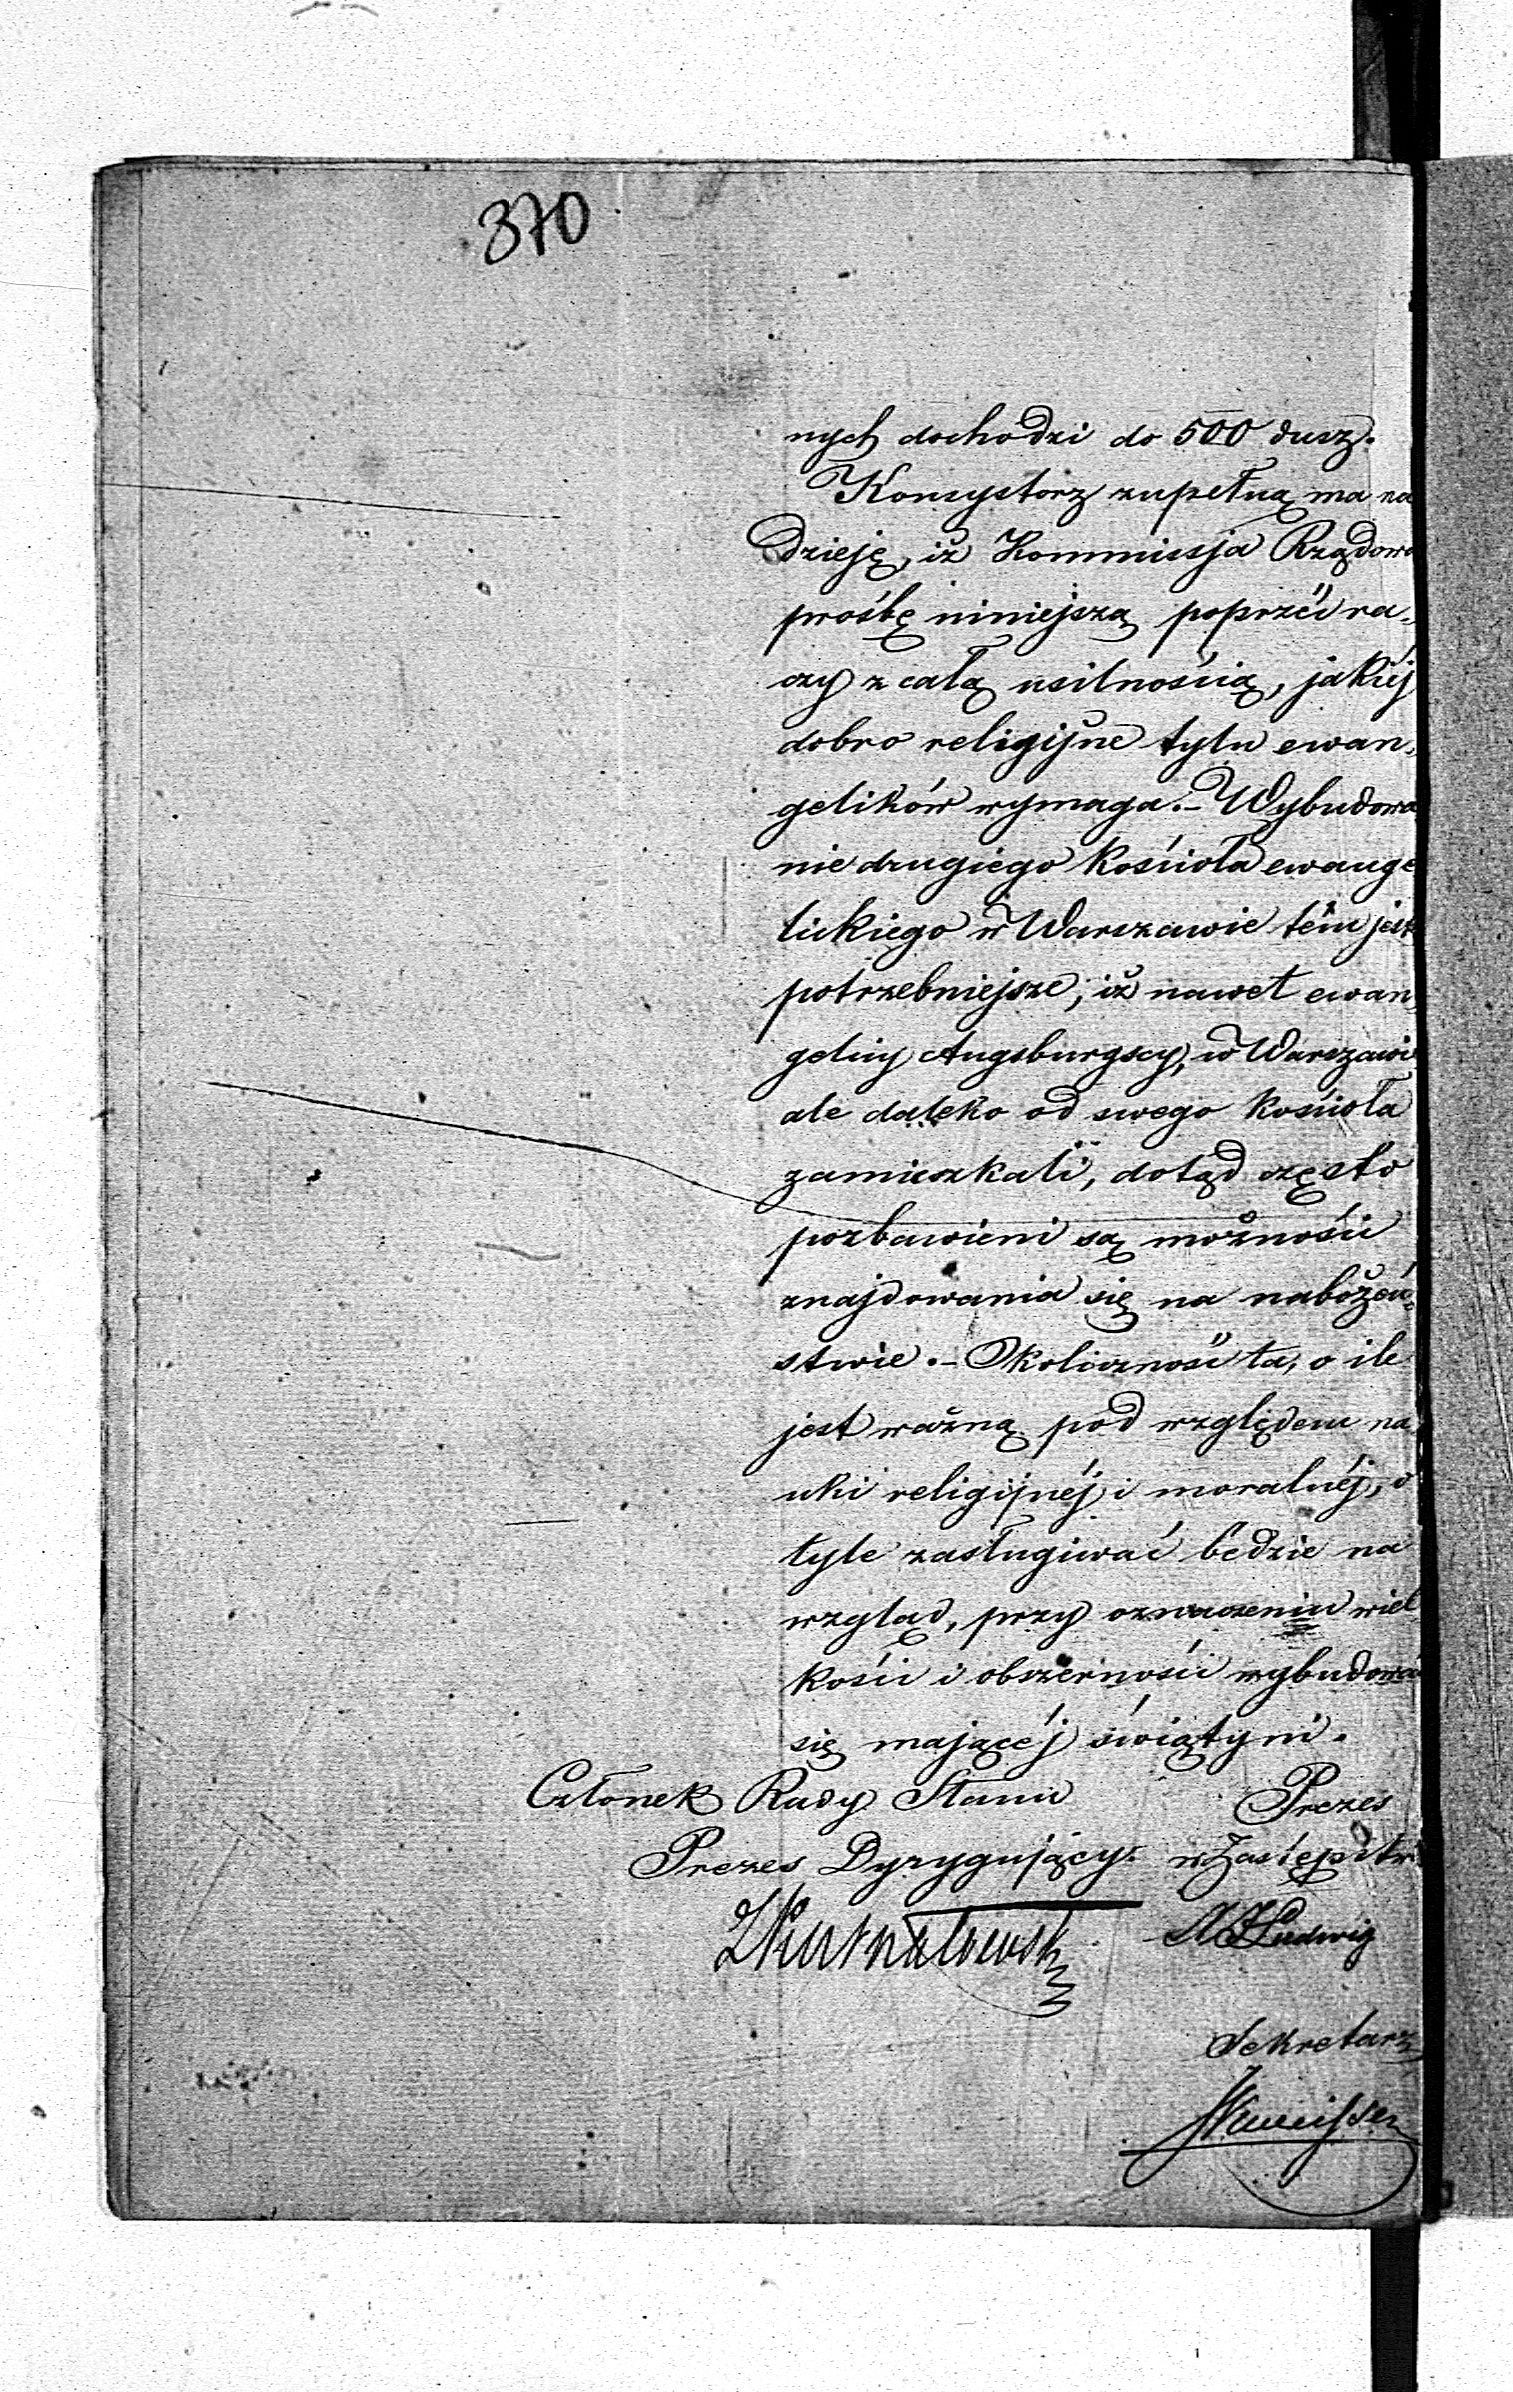 370
nych dochodzi do 500 dusz.
Konsystorz zupełną ma na
dzieję, iż Kommissja Rządowa
prośbę niniejszą poprzéć ra-
czy z całą usilnością, jakiéj
dobro religijne tylu ewan-
gelików wymaga. – Wybudowa
nie drugiego Kościoła ewange
lickiego w Warszawie tém jest
potrzebniejsze, iż nawet ewan
gelicy Augsburgscy, w Warszawie
ale daleko od swego Kościoła
zamieszkali, dotąd często
pozbawieni są możności
znajdowania się na nabożeń-
stwie. – Okoliczność ta, o ile
jest ważną pod względem na
uki religijnéj i moralnéj, o
tyle zasługiwać będzie na
wzgląd, przy oznaczeniu wiel
kości i obszerności wybudować
się mającéj świątyni.
Członek Rady Stanu Prezes
Prezes Dyrygujący w Zastępstwie
Ludwig
Sekretarz